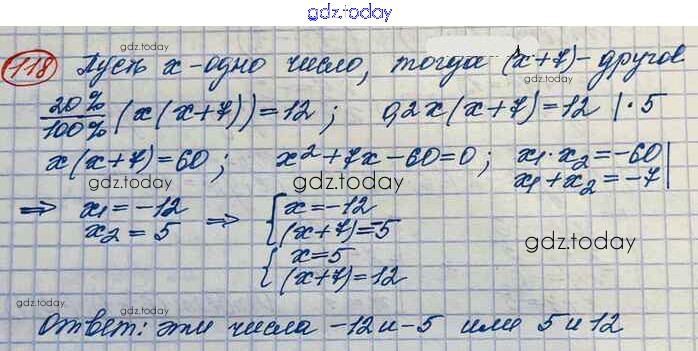 gdz.today
118 Пусть x - одно число, тогда (x+7) - другое
gdz.today
gdz.today
20%/100% (x(x+7)) = 12; 0,2x(x+7) = 12 | · 5
x(x+7) = 60; x² + 7x - 60 = 0; x₁ · x₂ = -60
x₁ + x₂ = -7
gdz.today
gdz.today
gdz.today
⇒ x₁ = -12 ⇒ { x = -12
x₂ = 5 (x+7) = 5
gdz.today
{ x = 5
(x+7) = 12
gdz.today
gdz.today
Ответ: эти числа -12 и -5 или 5 и 12